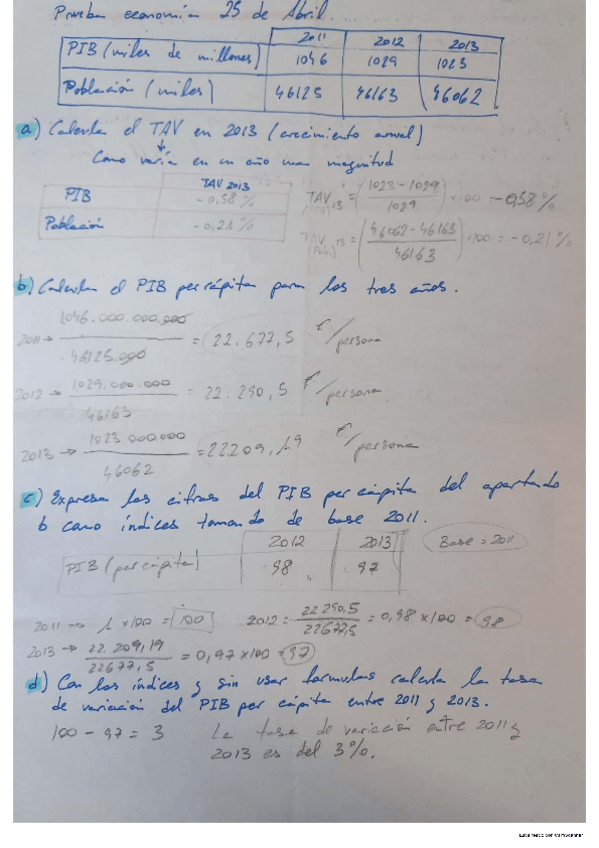 Prueba economía 25 de Abril.
2011 2012 2013
PIB (miles de millones) 1046 1029 1023
Población (miles) 46125 46163 46062
a) Calcula el TAV en 2013 (crecimiento anual)
Como varía en un año una magnitud
TAV 2013
PIB -0,58%
Población -0,21%
TAV 13 = (1023-1029/1029) × 100 = -0,58%
TAV (Pobl.) 13 = (46062-46163/46163) × 100 = -0,21%
b) Calcula el PIB per cápita para los tres años.
2011 → 1046.000.000.000 / 46125.000 = 22.677,5 €/persona
2012 → 1029.000.000 / 46163 = 22.290,5 €/persona
2013 → 1023.000.000 / 46062 = 22209,19 €/persona
c) Expresa las cifras del PIB per cápita del apartado
b como índices tomando de base 2011.
2012 2013 Base = 2011
PIB (per cápita) 98 97
2011 → 1 × 100 = 100 2012 = 22290,5 / 22677,5 = 0,98 × 100 = 98
2013 → 22.209,19 / 22677,5 = 0,97 × 100 = 97
d) Con los índices y sin usar formulas calcula la tasa
de variación del PIB per cápita entre 2011 y 2013.
100 - 97 = 3 La tasa de variación entre 2011 y
2013 es del 3%.